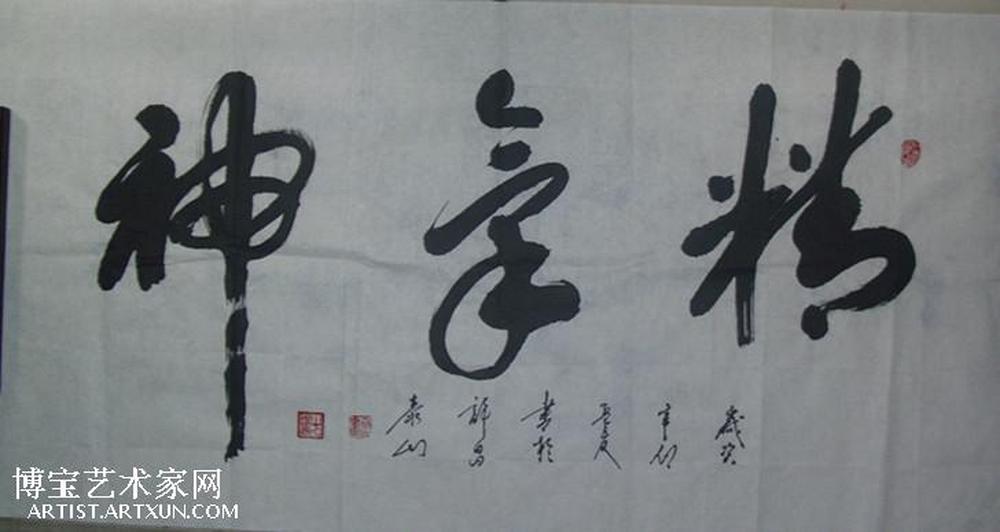 精氣神
歲次
辛卯
夏
書於
許昌
泰山
博宝艺术家网
ARTIST.ARTXUN.COM